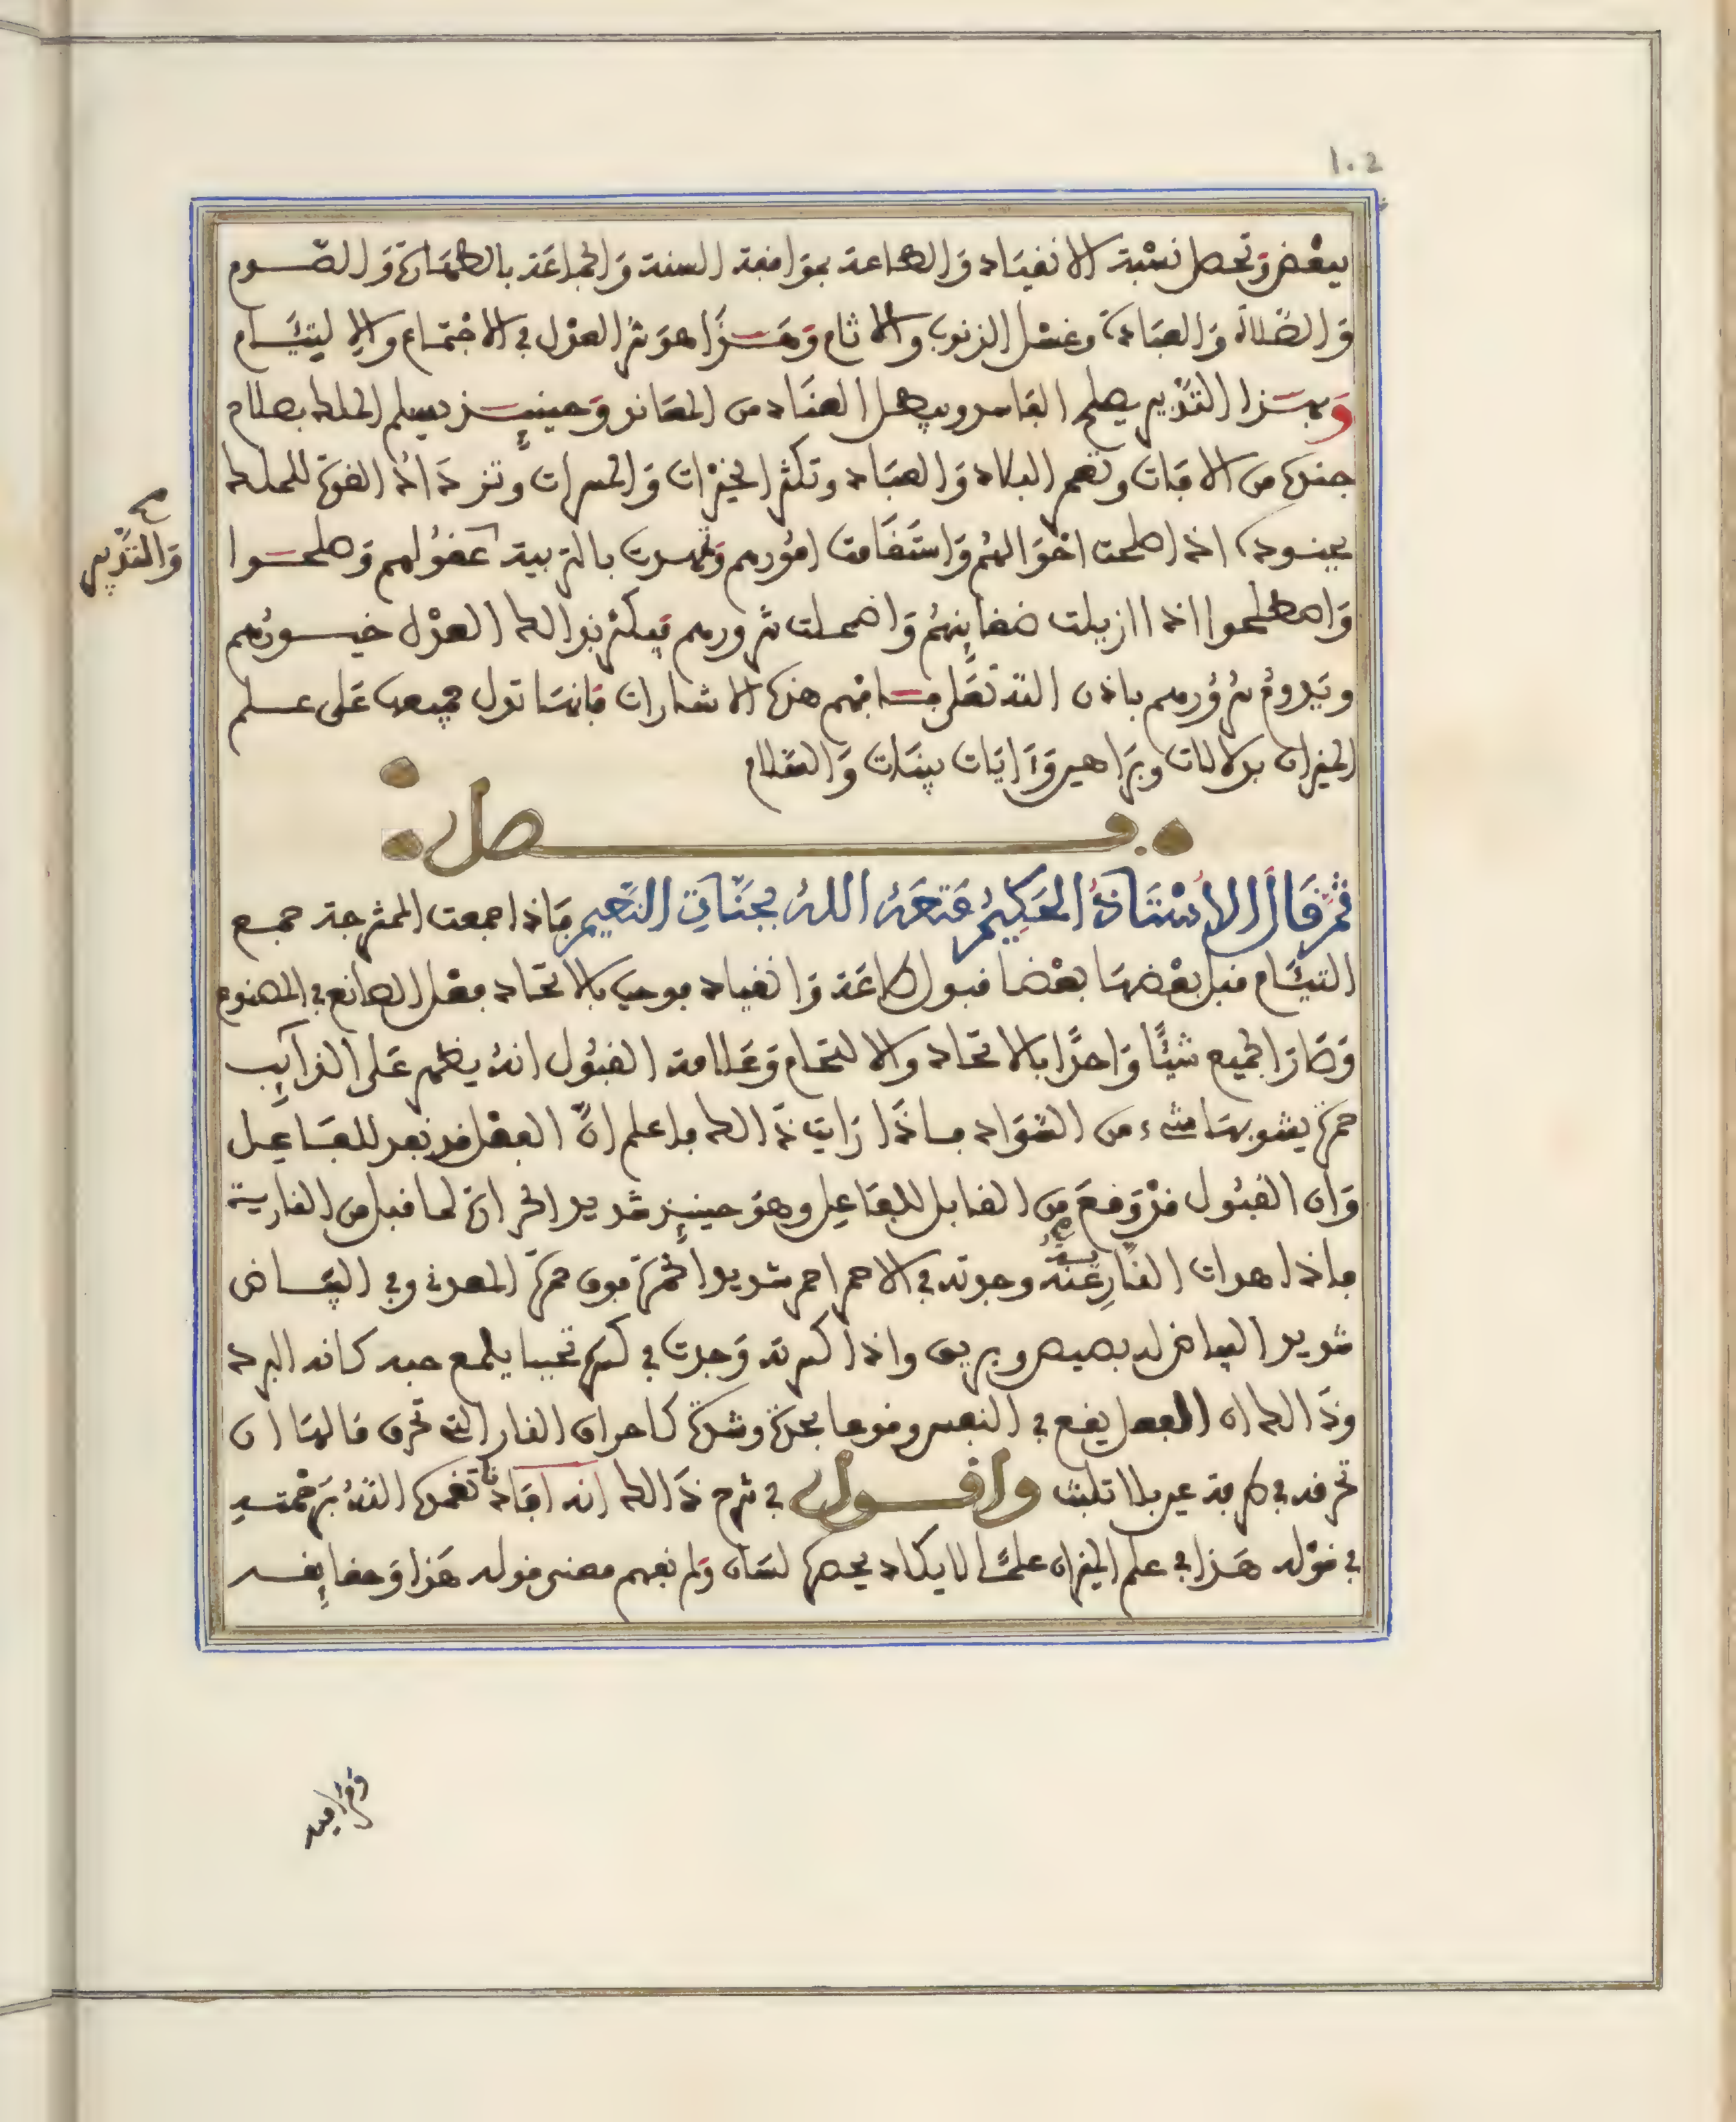 1.2
ببعض وتحصل نسبة الانقياد والطاعة بموافقة السنة والجماعة بالطهارة والصوم
والصلاة والعبادة وغسل الذنوب والاثام وهذا هو شرط العدل في الاجتماع والالتيام
وبهذا التدبير يصلح الفاسد ويسهل العناد من المعاند وحينئذ يسلم الملك بصلاح
جنده من الافات وتعمر البلاد والعباد وتكثر الخيرات والمسرات وتزداد القوة للملك
بجنوده اذا صلحت احوالهم واستقامت امورهم وتهذبت بالتربية عقولهم وصلحوا
واصطلحوا اذا ازيلت ضغاينهم واضمحلت شرورهم فيكثر بذالك العدل خيورهم
ويدوم سرورهم باذن الله تعلى فافهم هذه الاشارات فانها تدل جميعها على علم
الميزان بدلالات وبراهين وءايات بينات والسلام
فصل
ثم قال الاستاذ الحكيم متعه الله بجنات النعيم فاذا جمعت الممتزجة جمع
التيام قبل بعضها بعضا قبول طاعة وانقياد فوجب بالاتحاد فعل الصانع في المصنوع
وصار الجميع شيئا واحدا بالاتحاد والالتحام وعلامة القبول انه يظهر على التراكيب
حمرة يشوبها شيء من السواد فاذا رايت ذالك فاعلم ان الفعل قد نفد للفاعل
وان القبول قد وقع من القابل للفاعل وهو حينئذ شديد الحرارة لما قبل من النارية
فاذا هدات النار عنه وجدته في الاحمر احمر شديد الحمرة فوق حمرة المعدن وفي البياض
شديد البياض له بصيص وبريق واذا كسرته وجدت في كسره تحببا يلمع حبه كانه البرد
وذالك ان الفعل يقع في النفس وقوعا بحدة وشدة كاحراق النار التي تحرق مالها ان
تحرقه في طرفة عين بلا تلبث واقول في شرح ذالك انه افاد تغمده الله برحمته
في قوله هذا في علم الميزان علما لا يكاد يحصره لسان ولم نفهم معنى قوله هذا وحقايقه
والتدبير
صح